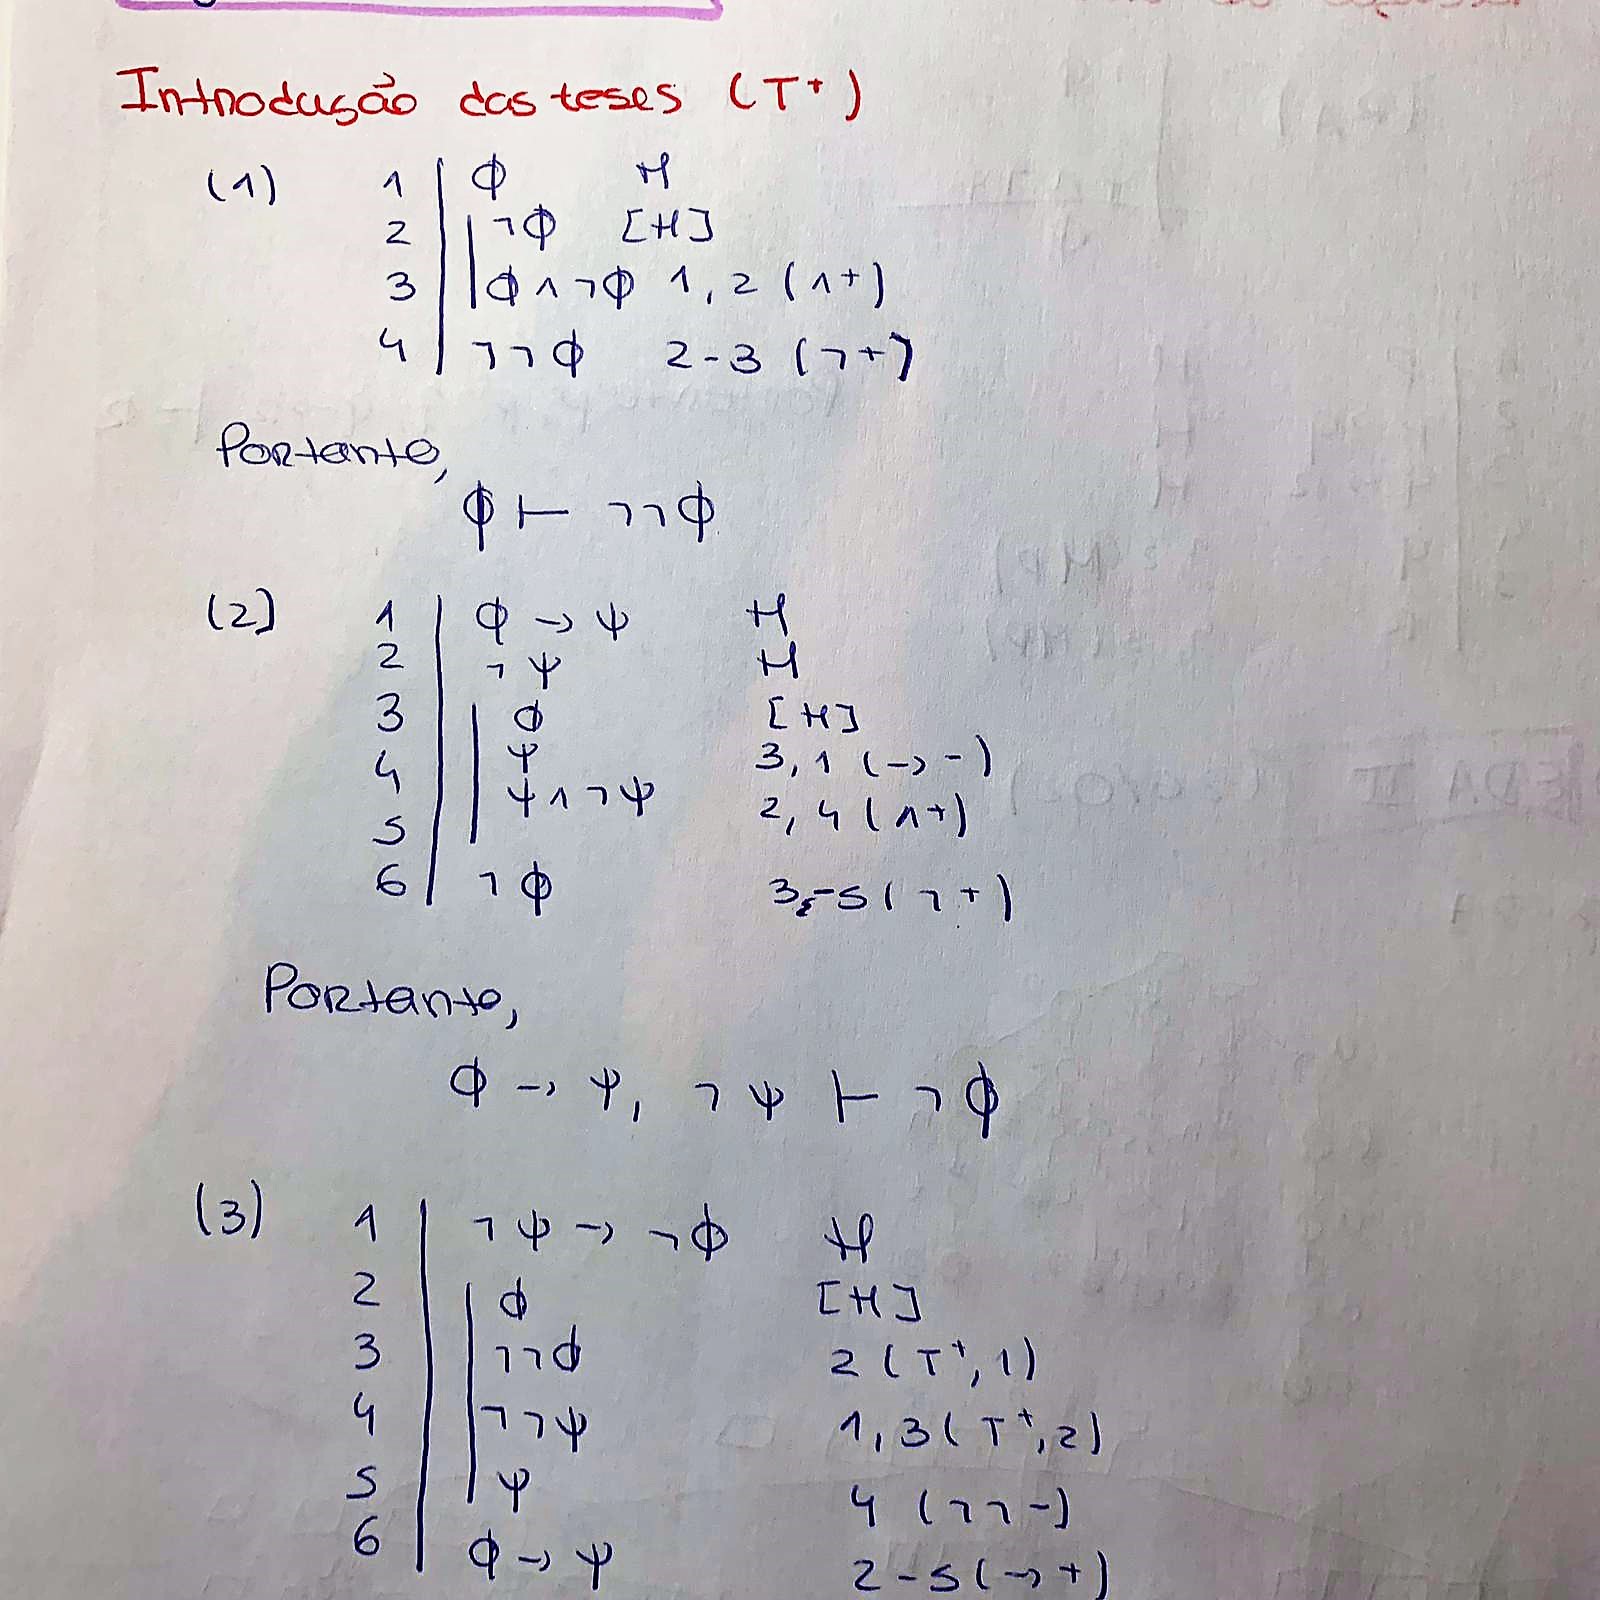 Introdução das teses (T⁺)
(1) 1 | ϕ H
2 | | ¬ϕ [H]
3 | | ϕ∧¬ϕ 1,2 (∧+)
4 | ¬¬ϕ 2-3 (¬+)
Portanto,
ϕ ⊢ ¬¬ϕ
(2) 1 | ϕ → ψ H
2 | ¬ψ H
3 | | ϕ [H]
4 | | ψ 3,1 (→-)
5 | | ψ∧¬ψ 2,4 (∧+)
6 | ¬ϕ 3-5 (¬+)
Portanto,
ϕ → ψ, ¬ψ ⊢ ¬ϕ
(3) 1 | ¬ψ → ¬ϕ H
2 | | ϕ [H]
3 | | ¬¬ϕ 2 (T⁺,1)
4 | | ¬¬ψ 1,3 (T⁺,2)
5 | | ψ 4 (¬¬-)
6 | ϕ → ψ 2-5 (→+)